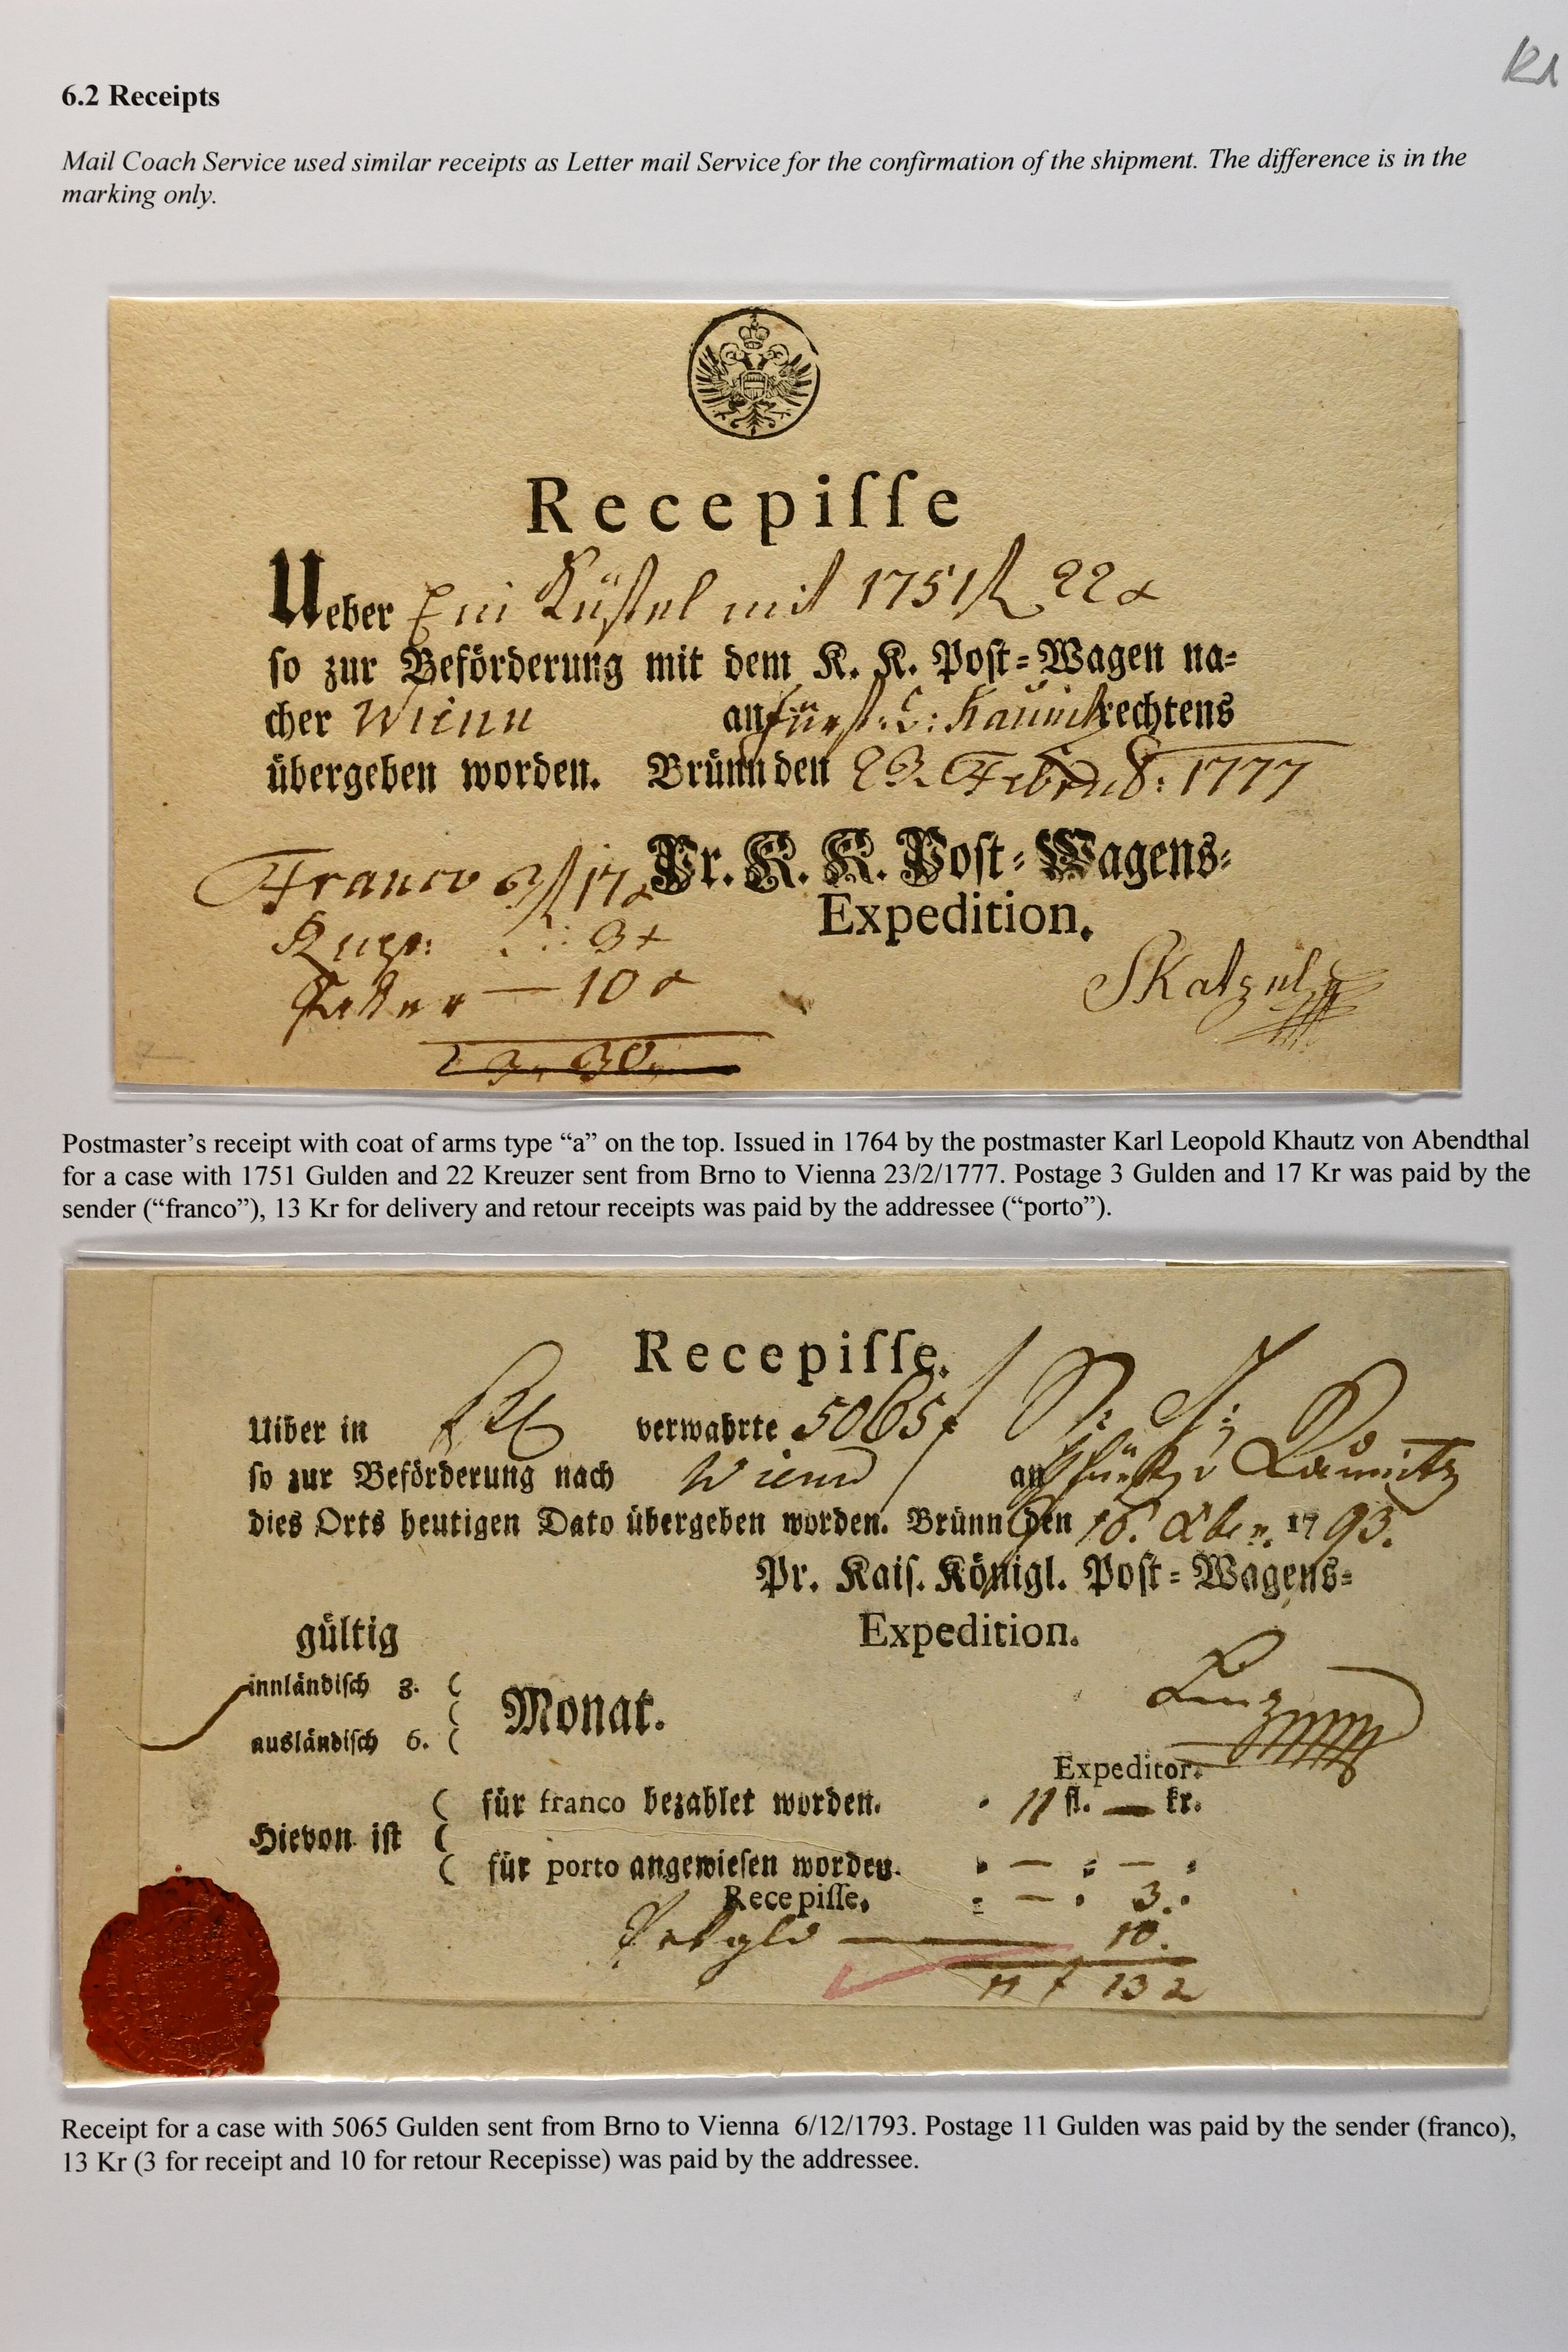 6.2 Receipts
Mail Coach Service used similar receipts as Letter mail Service for the confirmation of the shipment. The difference is in the
marking only.
Recepiſſe
Ueber Ein Küstel mit 1751 f 22 x
so zur Beförderung mit dem K. K. Poſt=Wagen na=
cher Wienn an Fürst: v: Kaunitz rechtens
übergeben worden. Brünn den 23. Februar: 1777
Franco 3 f 17 x Pr. K. K. Poſt=Wagens=
Expedition.
3 x
10 x
3. 30.
Skatzel
Postmaster's receipt with coat of arms type “a” on the top. Issued in 1764 by the postmaster Karl Leopold Khautz von Abendthal
for a case with 1751 Gulden and 22 Kreuzer sent from Brno to Vienna 23/2/1777. Postage 3 Gulden and 17 Kr was paid by the
sender (“franco”), 13 Kr for delivery and retour receipts was paid by the addressee (“porto”).
Recepiſſe.
Uiber in verwahrte 5065 f
ſo zur Beförderung nach Wienn an Fürst v Kaunitz
dies Orts heutigen Dato übergeben worden. Brünn den 1793.
Pr. Kaiſ. Königl. Poſt=Wagens=
Expedition.
gültig
innländiſch 3. (
( Monat.
ausländiſch 6. (
Expeditor.
Hievon iſt ( für franco bezahlet worden. 11 fl. — kr.
( für porto angewieſen worden. — —
Recepiſſe. — 3.
10.
11 f 13 x
Receipt for a case with 5065 Gulden sent from Brno to Vienna 6/12/1793. Postage 11 Gulden was paid by the sender (franco),
13 Kr (3 for receipt and 10 for retour Recepisse) was paid by the addressee.